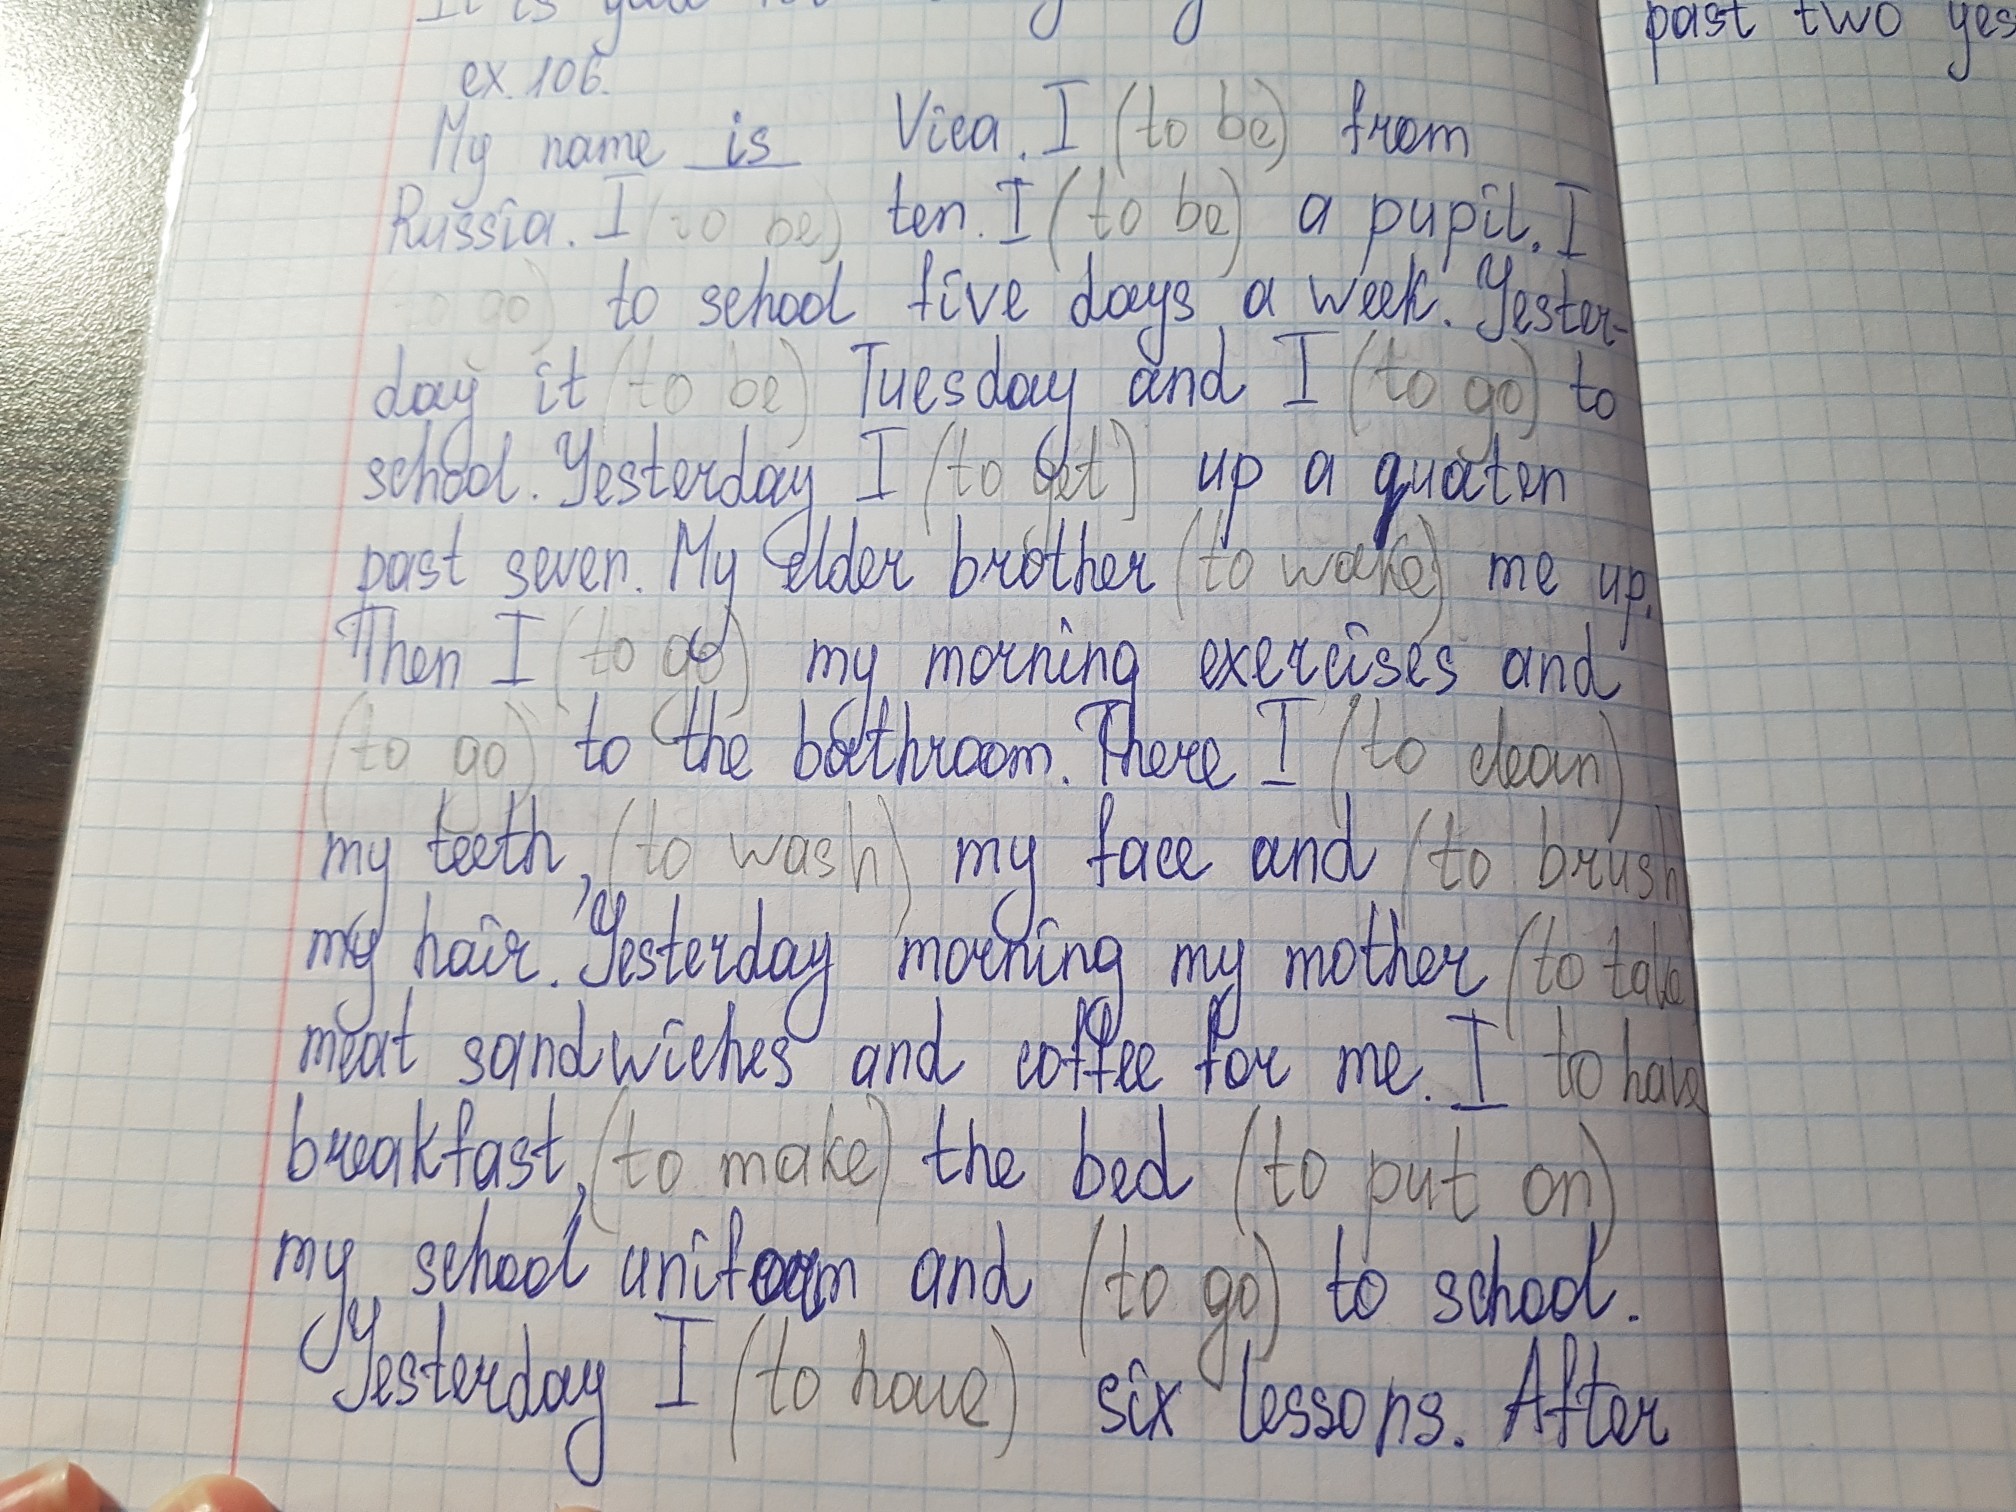 It is
ex. 106.
My name is Vica. I (to be) from
Russia. I (to be) ten. I (to be) a pupil. I
to go) to school five days a week. Yester-
day it (to be) Tuesday and I (to go) to
school. Yesterday I (to get) up a quaten
past seven. My elder brother (to wake) me up.
Then I (to do) my morning exercises and
(to go) to the bathroom. There I (to clean)
my teeth, (to wash) my face and (to brush
my hair. Yesterday morning my mother (to take
meat sandwiches and coffee for me. I to have
breakfast, (to make) the bed (to put on)
my school uniform and (to go) to school.
Yesterday I (to have) six lessons. After
past two yes